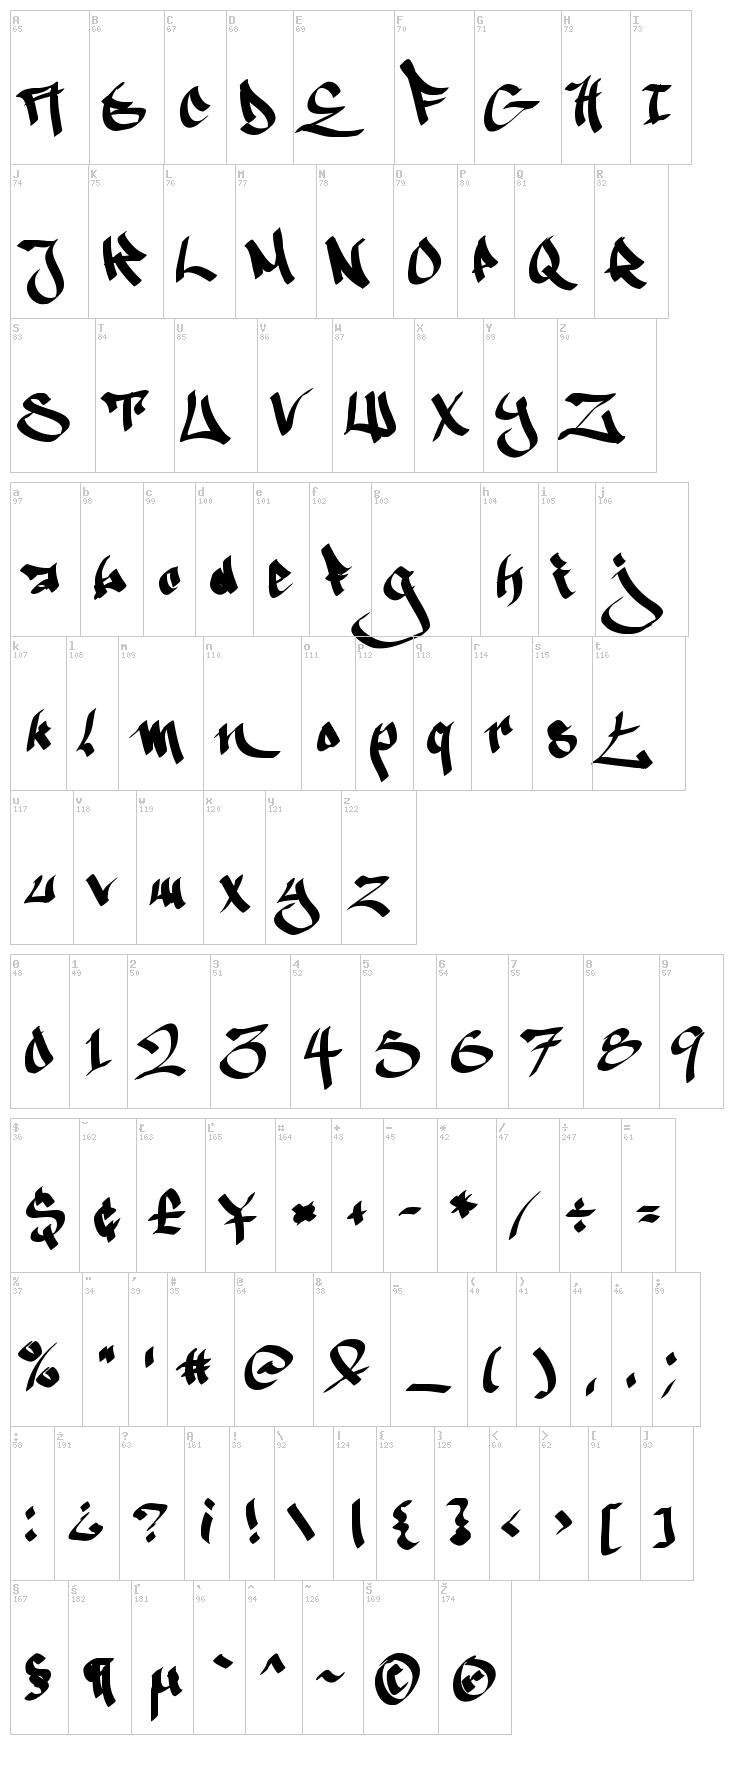 A B C D E F G H I
65 66 67 68 69 70 71 72 73
A B C D E F G H I
J K L M N O P Q R
74 75 76 77 78 79 80 81 82
J K L M N O P Q R
S T U V W X Y Z
83 84 85 86 87 88 89 90
S T U V W X Y Z
a b c d e f g h i j
97 98 99 100 101 102 103 104 105 106
a b c d e f g h i j
k l m n o p q r s t
107 108 109 110 111 112 113 114 115 116
k l m n o p q r s t
u v w x y z
117 118 119 120 121 122
u v w x y z
0 1 2 3 4 5 6 7 8 9
48 49 50 51 52 53 54 55 56 57
0 1 2 3 4 5 6 7 8 9
$ ˘ Ł Ľ ¤ + - * / ÷ =
36 162 163 165 164 43 45 42 47 247 61
$ ¢ £ ¥ ¤ + - * / ÷ =
% " ' # @ & _ ( ) , . ;
37 34 39 35 64 38 95 40 41 44 46 59
% " ' # @ & _ ( ) , . ;
: ż ? Ą ! \ | { } < > [ ]
58 191 63 161 33 92 124 123 125 60 62 91 93
: ¿ ? ¡ ! \ | { } < > [ ]
§ ś ľ ` ^ ~ Š Ž
167 182 181 96 94 126 169 174
§ ¶ µ ` ^ ~ © ®